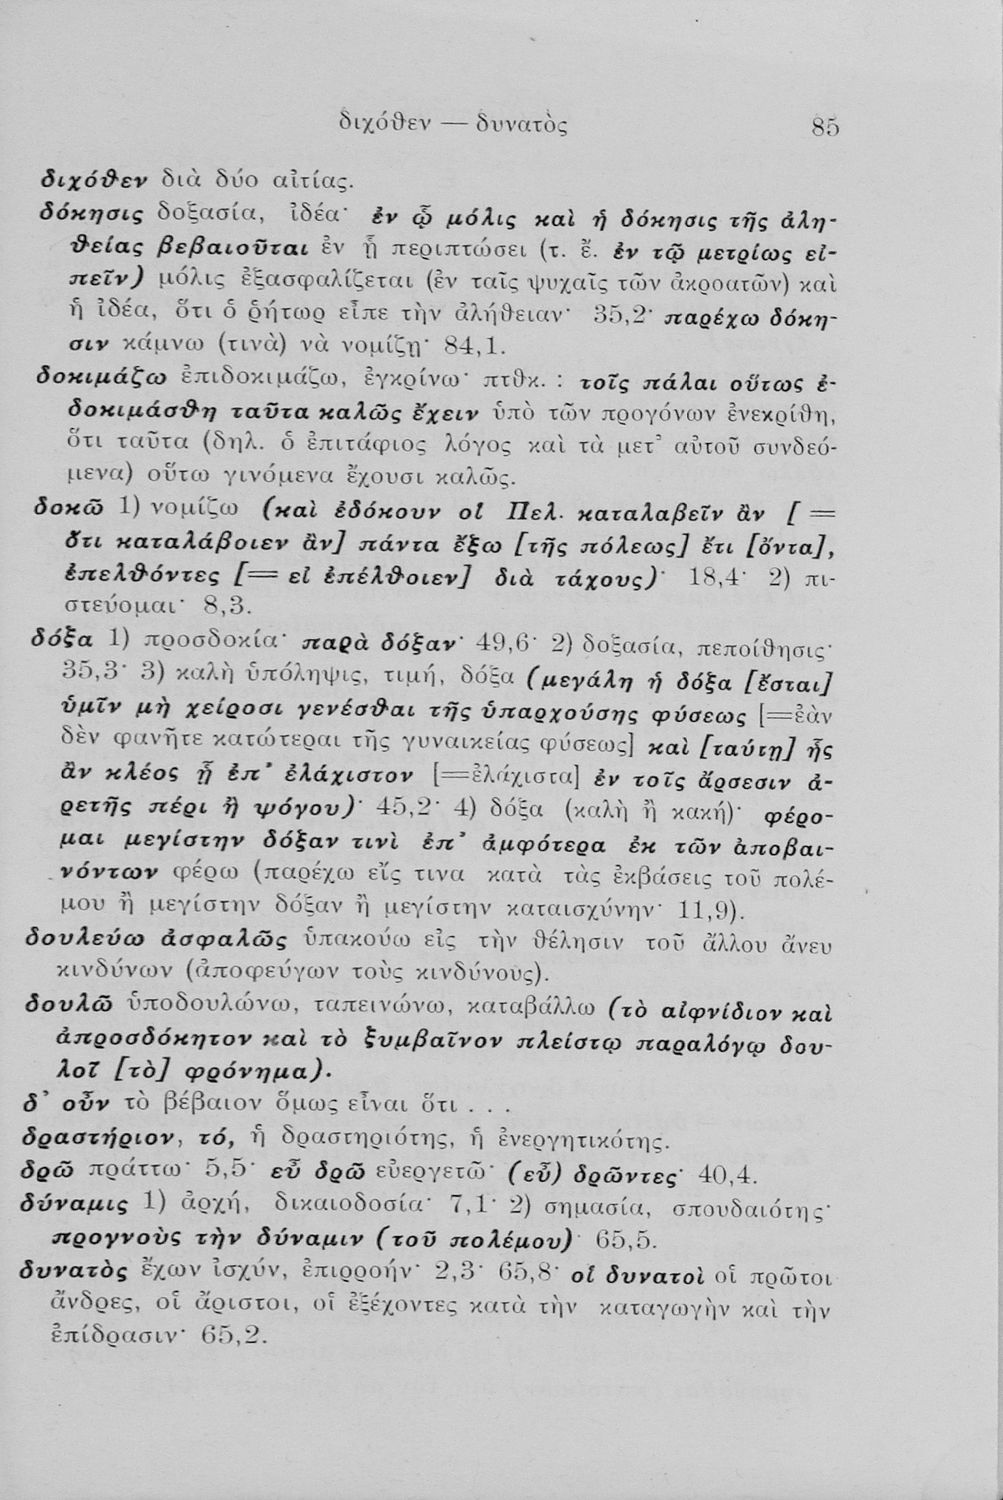 διχόθεν — δυνατὸς 85
διχόθεν διὰ δύο αἰτίας.
δόκησις δοξασία, ἰδέα· ἐν ᾧ μόλις καὶ ἡ δόκησις τῆς ἀλη-
θείας βεβαιοῦται ἐν ᾗ περιπτώσει (τ. ἔ. ἐν τῷ μετρίως εἰ-
πεῖν) μόλις ἐξασφαλίζεται (ἐν ταῖς ψυχαῖς τῶν ἀκροατῶν) καὶ
ἡ ἰδέα, ὅτι ὁ ῥήτωρ εἶπε τὴν ἀλήθειαν· 35,2· παρέχω δόκη-
σιν κάμνω (τινὰ) νὰ νομίζῃ· 84,1.
δοκιμάζω ἐπιδοκιμάζω, ἐγκρίνω· πτθκ. : τοῖς πάλαι οὕτως ἐ-
δοκιμάσθη ταῦτα καλῶς ἔχειν ὑπὸ τῶν προγόνων ἐνεκρίθη,
ὅτι ταῦτα (δηλ. ὁ ἐπιτάφιος λόγος καὶ τὰ μετ' αὐτοῦ συνδεό-
μενα) οὕτω γινόμενα ἔχουσι καλῶς.
δοκῶ 1) νομίζω (καὶ ἐδόκουν οἱ Πελ. καταλαβεῖν ἂν [ =
ὅτι καταλάβοιεν ἂν] πάντα ἔξω [τῆς πόλεως] ἔτι [ὄντα],
ἐπελθόντες [= εἰ ἐπέλθοιεν] διὰ τάχους)· 18,4· 2) πι-
στεύομαι· 8,3.
δόξα 1) προσδοκία· παρὰ δόξαν· 49,6· 2) δοξασία, πεποίθησις·
35,3· 3) καλὴ ὑπόληψις, τιμή, δόξα (μεγάλη ἡ δόξα [ἔσται]
ὑμῖν μὴ χείροσι γενέσθαι τῆς ὑπαρχούσης φύσεως [=ἐὰν
δὲν φανῆτε κατώτεραι τῆς γυναικείας φύσεως] καὶ [ταύτῃ] ἧς
ἂν κλέος ᾖ ἐπ' ἐλάχιστον [=ἐλάχιστα] ἐν τοῖς ἄρσεσιν ἀ-
ρετῆς πέρι ἢ ψόγου)· 45,2· 4) δόξα (καλὴ ἢ κακή)· φέρο-
μαι μεγίστην δόξαν τινὶ ἐπ' ἀμφότερα ἐκ τῶν ἀποβαι-
νόντων φέρω (παρέχω εἴς τινα κατὰ τὰς ἐκβάσεις τοῦ πολέ-
μου ἢ μεγίστην δόξαν ἢ μεγίστην καταισχύνην· 11,9).
δουλεύω ἀσφαλῶς ὑπακούω εἰς τὴν θέλησιν τοῦ ἄλλου ἄνευ
κινδύνων (ἀποφεύγων τοὺς κινδύνους).
δουλῶ ὑποδουλώνω, ταπεινώνω, καταβάλλω (τὸ αἰφνίδιον καὶ
ἀπροσδόκητον καὶ τὸ ξυμβαῖνον πλείστῳ παραλόγῳ δου-
λοῖ [τὸ] φρόνημα).
δ' οὖν τὸ βέβαιον ὅμως εἶναι ὅτι . . .
δραστήριον, τό, ἡ δραστηριότης, ἡ ἐνεργητικότης.
δρῶ πράττω· 5,5· εὖ δρῶ εὐεργετῶ· (εὖ) δρῶντες· 40,4.
δύναμις 1) ἀρχή, δικαιοδοσία· 7,1· 2) σημασία, σπουδαιότης·
προγνοὺς τὴν δύναμιν (τοῦ πολέμου)· 65,5.
δυνατὸς ἔχων ἰσχύν, ἐπιρροήν· 2,3· 65,8· οἱ δυνατοὶ οἱ πρῶτοι
ἄνδρες, οἱ ἄριστοι, οἱ ἐξέχοντες κατὰ τὴν καταγωγὴν καὶ τὴν
ἐπίδρασιν· 65,2.